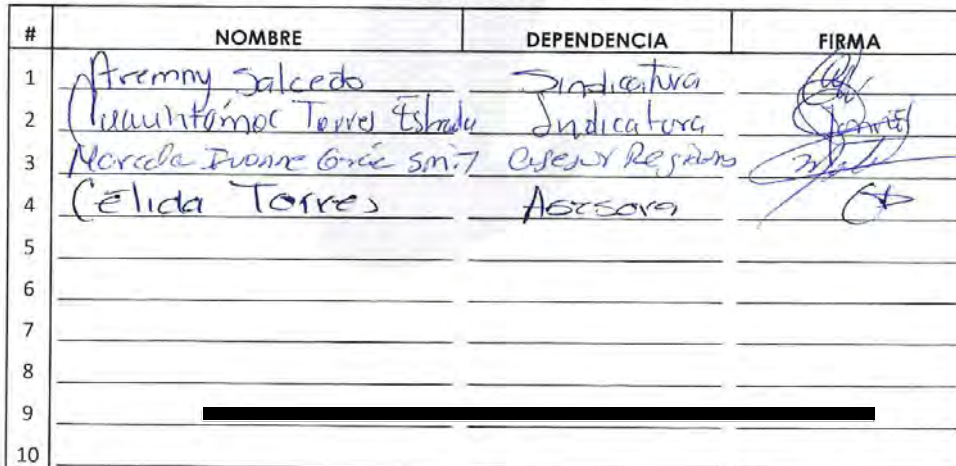 # NOMBRE DEPENDENCIA FIRMA
1 Aremny Salcedo Sindicatura
2 Cuauhtémoc Torres Estrada Sindicatura
3 Marcela Ivonne
4 Célida Torres Asesora
5
6
7
8
9
10